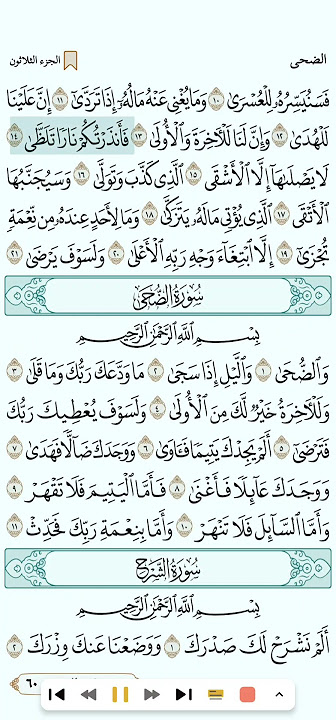 الضحى
الجزء الثلاثون
فَسَنُيَسِّرُهُۥ لِلۡعُسۡرَىٰ ١٠ وَمَا يُغۡنِي عَنۡهُ مَالُهُۥٓ إِذَا تَرَدَّىٰٓ ١١ إِنَّ عَلَيۡنَا
لَلۡهُدَىٰ ١٢ وَإِنَّ لَنَا لَلۡأٓخِرَةَ وَٱلۡأُولَىٰ ١٣ فَأَنذَرۡتُكُمۡ نَارٗا تَلَظَّىٰ ١٤
لَا يَصۡلَىٰهَآ إِلَّا ٱلۡأَشۡقَى ١٥ ٱلَّذِي كَذَّبَ وَتَوَلَّىٰ ١٦ وَسَيُجَنَّبُهَا
ٱلۡأَتۡقَى ١٧ ٱلَّذِي يُؤۡتِي مَالَهُۥ يَتَزَكَّىٰ ١٨ وَمَا لِأَحَدٍ عِندَهُۥ مِن نِّعۡمَةٖ
تُجۡزَىٰٓ ١٩ إِلَّا ٱبۡتِغَآءَ وَجۡهِ رَبِّهِ ٱلۡأَعۡلَىٰ ٢٠ وَلَسَوۡفَ يَرۡضَىٰ ٢١
سُورَةُ الضُّحَى
بِسۡمِ ٱللَّهِ ٱلرَّحۡمَٰنِ ٱلرَّحِيمِ
وَٱلضُّحَىٰ ١ وَٱلَّيۡلِ إِذَا سَجَىٰ ٢ مَا وَدَّعَكَ رَبُّكَ وَمَا قَلَىٰ ٣
وَلَلۡأٓخِرَةُ خَيۡرٞ لَّكَ مِنَ ٱلۡأُولَىٰ ٤ وَلَسَوۡفَ يُعۡطِيكَ رَبُّكَ
فَتَرۡضَىٰٓ ٥ أَلَمۡ يَجِدۡكَ يَتِيمٗا فَـَٔاوَىٰ ٦ وَوَجَدَكَ ضَآلّٗا فَهَدَىٰ ٧
وَوَجَدَكَ عَآئِلٗا فَأَغۡنَىٰ ٨ فَأَمَّا ٱلۡيَتِيمَ فَلَا تَقۡهَرۡ ٩
وَأَمَّا ٱلسَّآئِلَ فَلَا تَنۡهَرۡ ١٠ وَأَمَّا بِنِعۡمَةِ رَبِّكَ فَحَدِّثۡ ١١
سُورَةُ الشَّرۡحِ
بِسۡمِ ٱللَّهِ ٱلرَّحۡمَٰنِ ٱلرَّحِيمِ
أَلَمۡ نَشۡرَحۡ لَكَ صَدۡرَكَ ١ وَوَضَعۡنَا عَنكَ وِزۡرَكَ ٢
٦٠